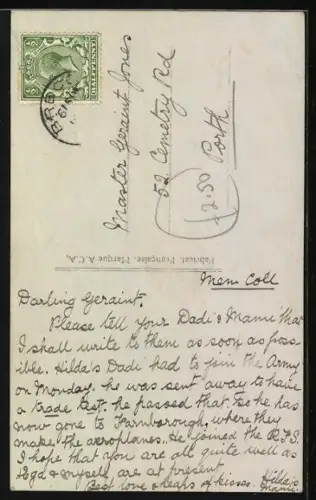 HALFPENNY
Master Geraint Jones
52 Cemetry Rd
Porth
2.50
Fabricat. Française, Marque A.C.A,
Mem Coll
Darling Geraint.
Please tell your Dadi & Mami that
I shall write to them as soon as poss-
ible. Hilda's Dadi had to join the Army
on Monday. he was sent away to have
a trade test. he passed that so he has
now gone to Farnborough, where they
make the aeroplanes. He joined the R.F.S.
I hope that you are all quite well as
& myself are at present
Best love & heaps of kisses. Hilda's
Mami.